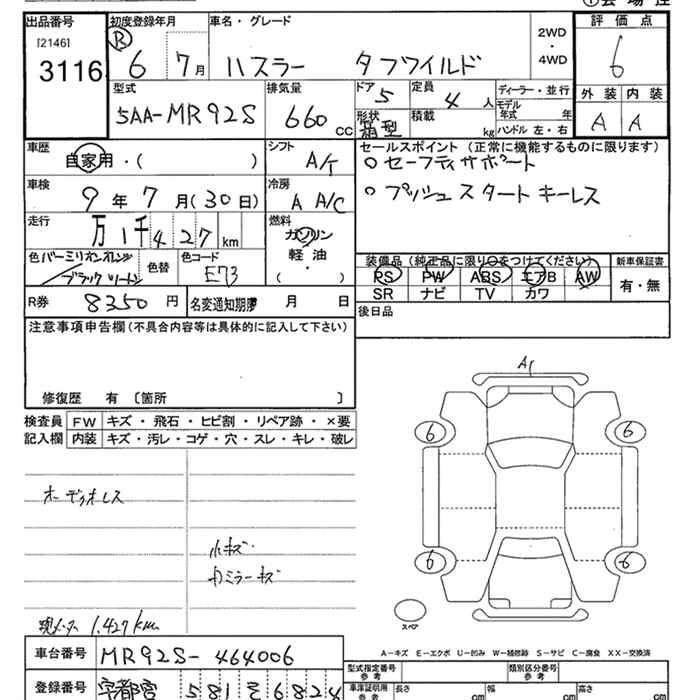 出品番号 初度登録年月 車名・グレード 2WD・4WD 評価点
[2146]
3116
R 6 7月 ハスラー タフワイルド 6
外装 内装
A A
型式 排気量 ドア 定員 ディーラー・並行
5AA-MR92S 660 cc 5 4人 モデル年式 年
形状 積載 ハンドル 左・右
箱型 kg
車歴 シフト セールスポイント(正常に機能するものに限ります)
自家用・( ) A/T ○セーフティサポート
車検 冷房
9年7月(30日) A A/C ○プッシュスタートキーレス
走行 燃料
万1千427km ガソリン
軽油
・( )
色 バーミリオンオレンジ/ブラックツートン 色替 色コード E73
装備品(純正品に限り○をつけてください) 新車保証書
PS PW ABS エアB AW 有・無
SR ナビ TV カワ
R券 8350円 名変通知期限 月 日 後日品
注意事項申告欄(不具合内容等は具体的に記入して下さい)
修復歴 有 〔箇所 〕
検査員 FW キズ・飛石・ヒビ割・リペア跡・×要
記入欄 内装 キズ・汚レ・コゲ・穴・スレ・キレ・破レ
A1
6 6
6 6
オーディオレス
小キズ
スペア
1.427km
A-キズ E-エクボ U-凹み W-補修跡 S-サビ C-腐食 XX-交換済
車台番号 MR92S-464006
登録番号 宇都宮 581 そ 6824
型式指定番号 類別区分番号
参考 参考
車庫証明用 長さ 幅 高さ
参考 cm cm cm